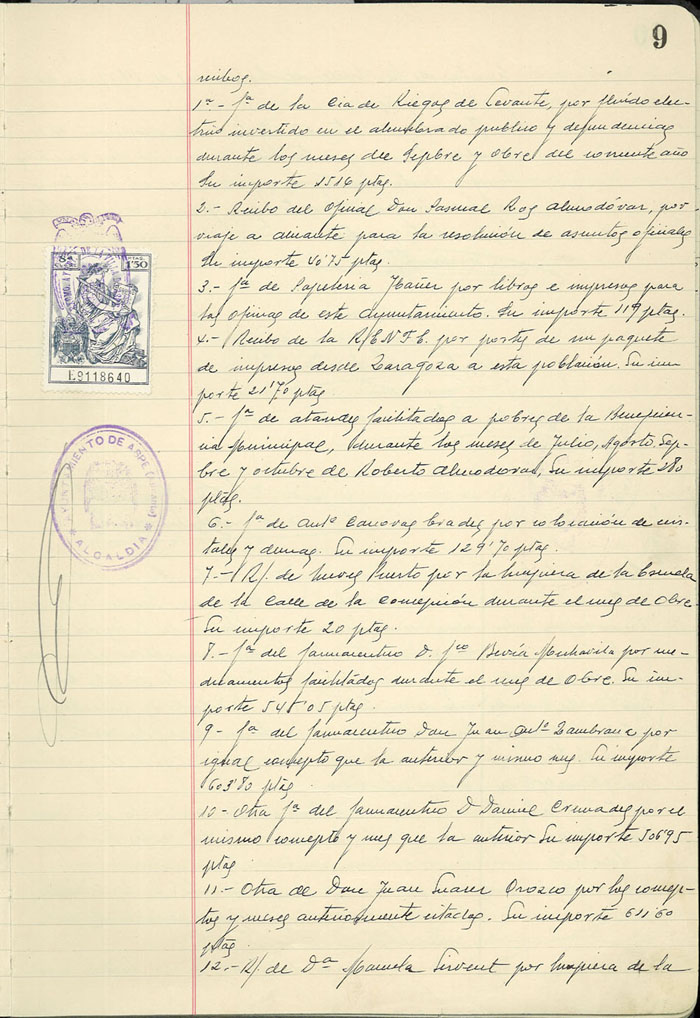 9
recibos.
1ª.- fª de la Cia de Riegos de Levante, por fluido elec-
trico invertido en el alumbrado publico y dependencias
durante los meses del Sepbre y Obre del corriente año
Su importe 1516 ptas.
2.- Recibo del Oficial Don Pascual Ros Almodóvar, por
viaje a Alicante para la resolución de asuntos oficiales
Su importe 40'75 ptas.
3.- fª de Papeleria Ibáñez por libros e impresos para
las oficinas de este Ayuntamiento. Su importe 119 ptas.
4.- Recibo de la R/E.N.F.E. por portes de un paquete
de impresos desde Zaragoza a esta población. Su im-
porte 21'70 ptas
5.- fª de ataudes facilitados a pobres de la Beneficen-
cia Municipal, durante los meses de Julio, Agosto, Sep-
bre y octubre de Roberto Almodovar, Su importe 280
ptas.
6.- fª de Antº Canovas Prades por colocación de cris-
tales y demas. Su importe 129'70 ptas.
7.- R/. de Nieves Puerto por la limpiera de la Escuela
de la Calle de la Concepción durante el mes de Obre.
Su importe 20 ptas.
8.- fª del farmaceutico D. fco Beviá por me-
dicamentos facilitados durante el mes de Obre. Su im-
porte 545'05 ptas
9.- fª del farmaceutico Don Juan Antº Zambrana por
igual concepto que la anterior y mismo mes. Su importe
603'80 ptas
10- Otra fª del farmaceutico D Daniel Cremades por el
mismo concepto y mes que la anterior Su importe 506'95
ptas
11.- Otra de Don Juan Suarez Orozco por los concep-
tos y meses anteriormente citados. Su importe 611'60
ptas
12.- R/. de Dª Manuela Sirvent por limpiera de la
8ª
PTAS.
1'50
E9118640
AYUNTAMIENTO DE ASPE
ALCALDIA